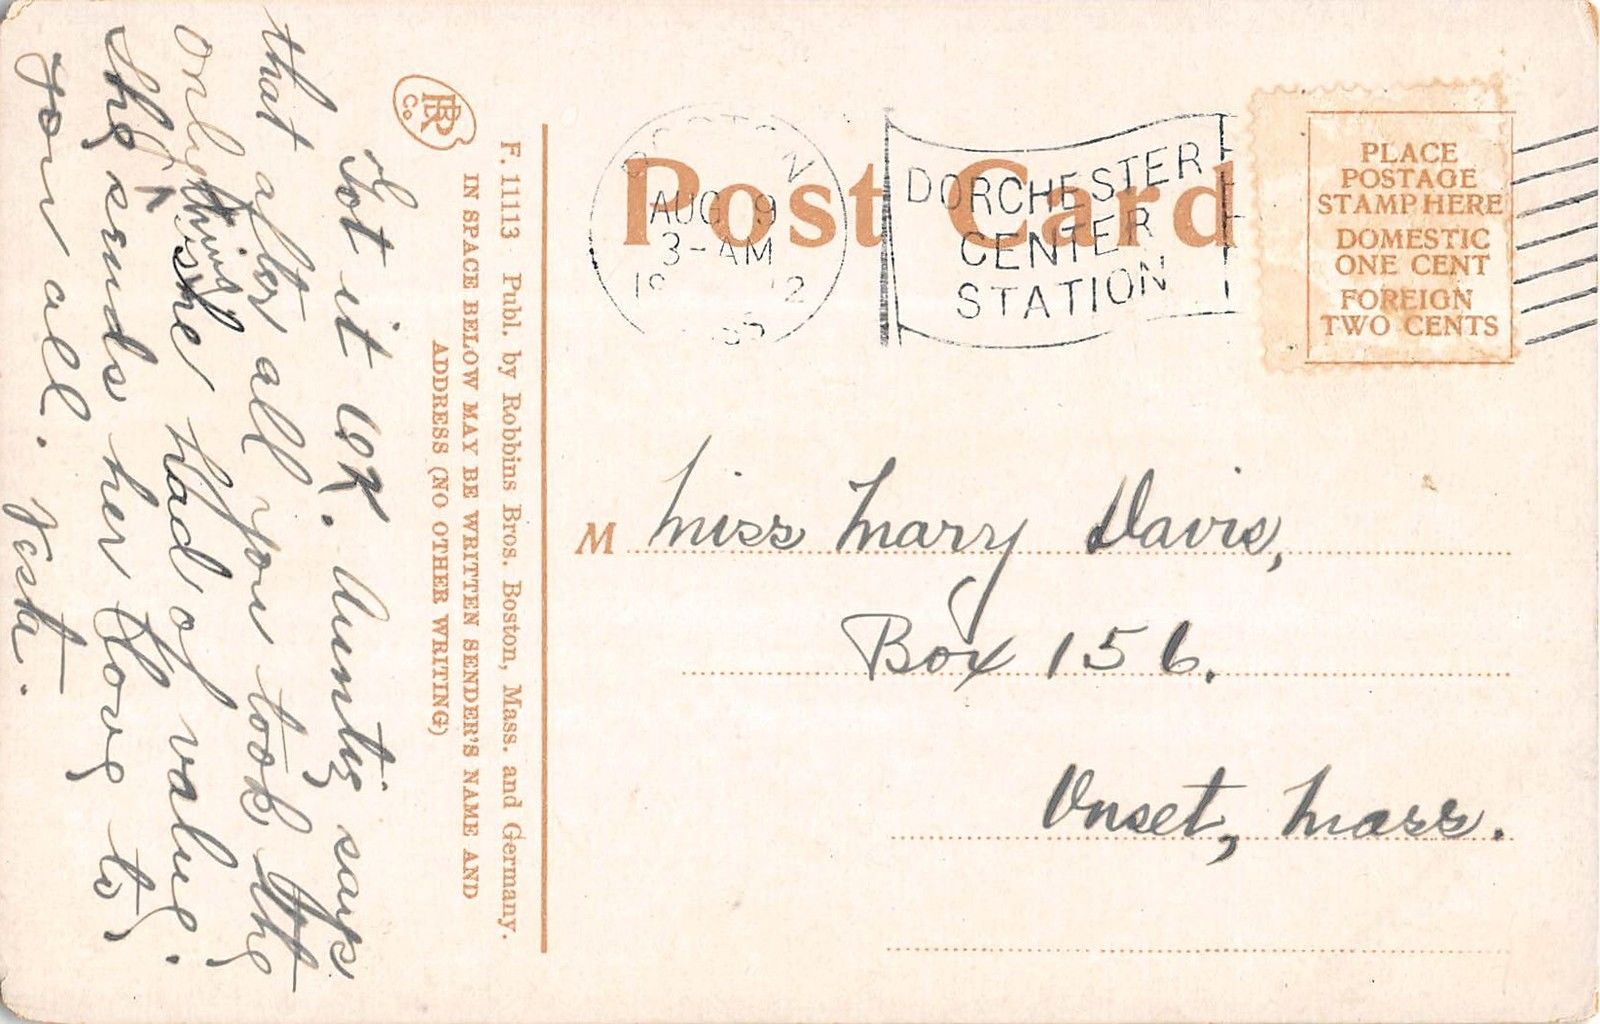 Got it OK. Aunty says
that after all you took the
only thing she had of value.
She sends her love to
you all.
F. 11113 Publ. by Robbins Bros. Boston, Mass. and Germany.
IN SPACE BELOW MAY BE WRITTEN SENDER'S NAME AND
ADDRESS (NO OTHER WRITING)
RB
Co.
Post Card
BOSTON
AUG 9
3-AM
DORCHESTER
CENTER
STATION
PLACE
POSTAGE
STAMP HERE
DOMESTIC
ONE CENT
FOREIGN
TWO CENTS
M Miss Mary Davis,
Box 156.
Onset, Mass.